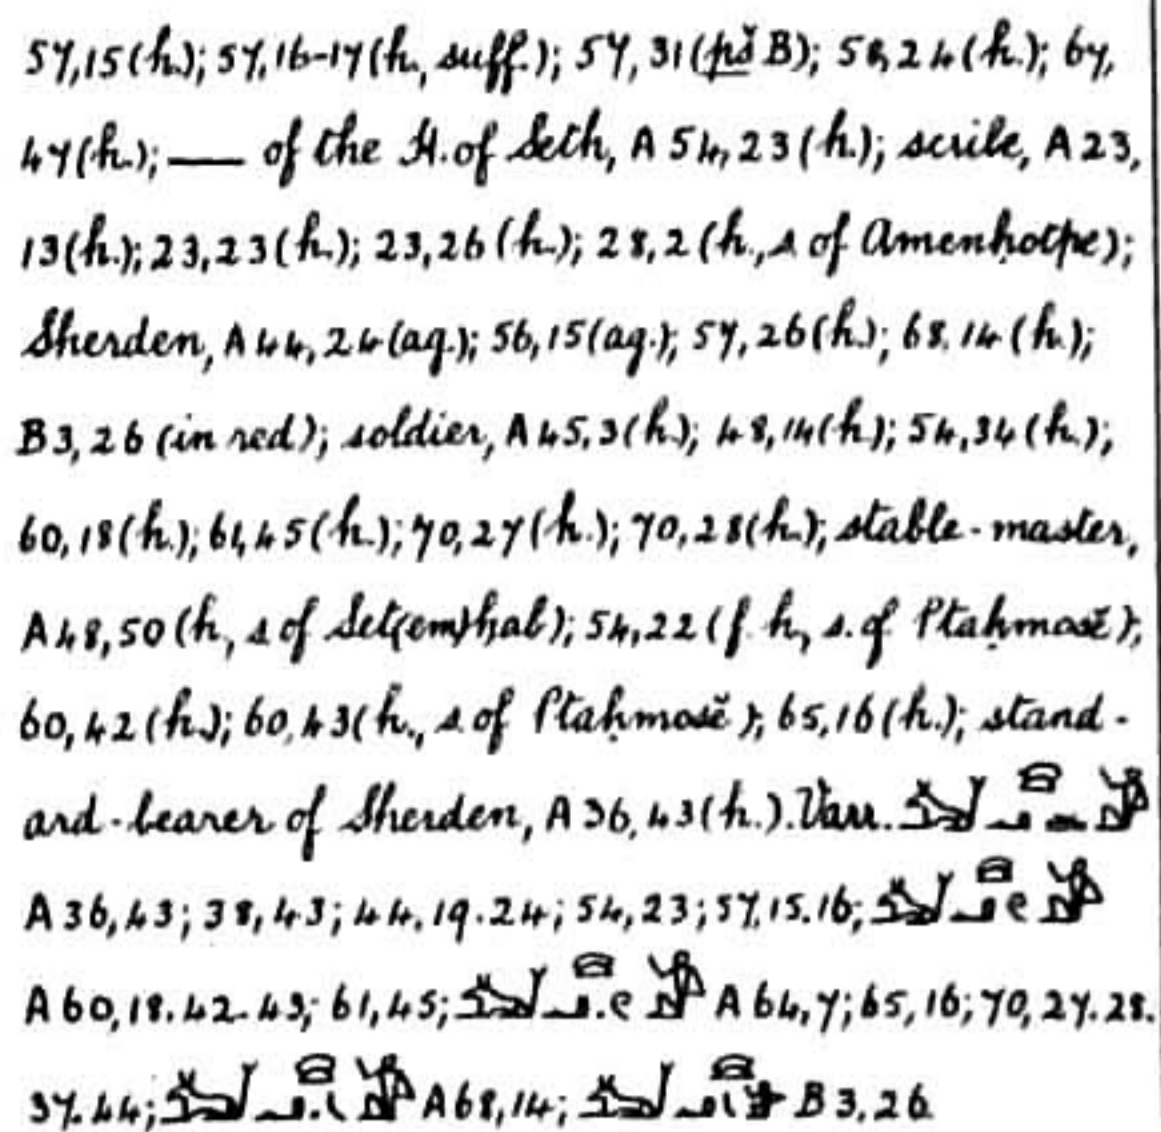 57,15(h.); 57,16-17(h., suff.); 57,31(pš B); 58,24(h.); 67,
47(h.); —— of the H. of Seth, A 54,23(h.); scribe, A 23,
13(h.); 23,23(h.); 23,26(h.); 28,2(h., s of Amenḥotpe);
Sherden, A 44,24(ag.); 56,15(ag.); 57,26(h.); 68,14(h.);
B 3,26 (in red); soldier, A 45,3(h.); 48,14(h); 54,34(h.);
60,18(h.); 61,45(h.); 70,27(h.); 70,28(h.); stable-master,
A 48,50(h., s of Set(em)ḥab); 54,22(f. h., s. of Ptaḥmosĕ);
60,42(h.); 60,43(h., s. of Ptaḥmosĕ); 65,16(h.); stand-
ard-bearer of Sherden, A 36,43(h.). Varr.
A 36,43; 38,43; 44,19.24; 54,23; 57,15.16;
A 60,18.42.43; 61,45; A 64,7; 65,16; 70,27.28.
37.44; A 68,14; B 3,26